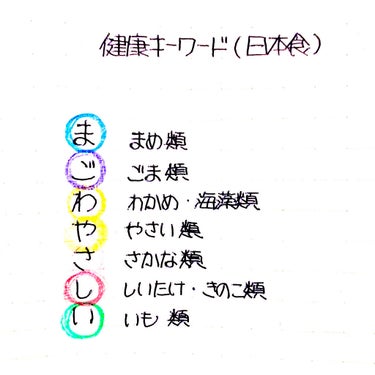 健康キーワード(日本食)
ま まめ類
ご ごま類
わ わかめ・海藻類
や やさい類
さ さかな類
し しいたけ・きのこ類
い いも類